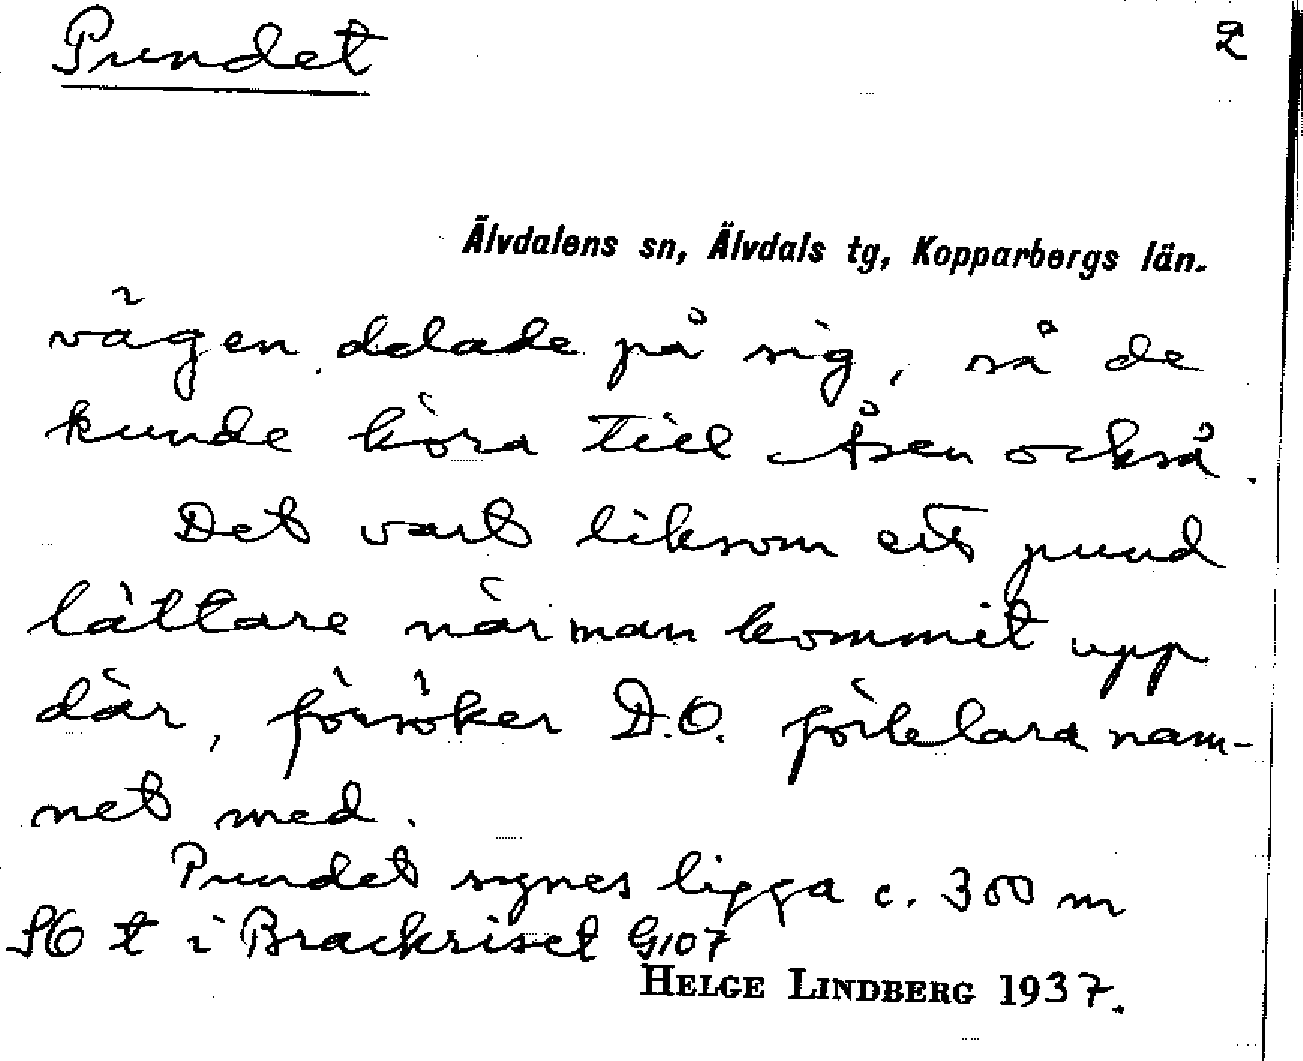 Pundet 2
Älvdalens sn, Älvdals tg, Kopparbergs län.
vägen delade på sig, så de
kunde köra till Åsen också.
Det vart liksom ett pund
lättare när man kommit upp
där, försöker D.O. förklara nam-
net med.
Pundet synes ligga c. 300 m
SO t i Brackriset G107
HELGE LINDBERG 1937.